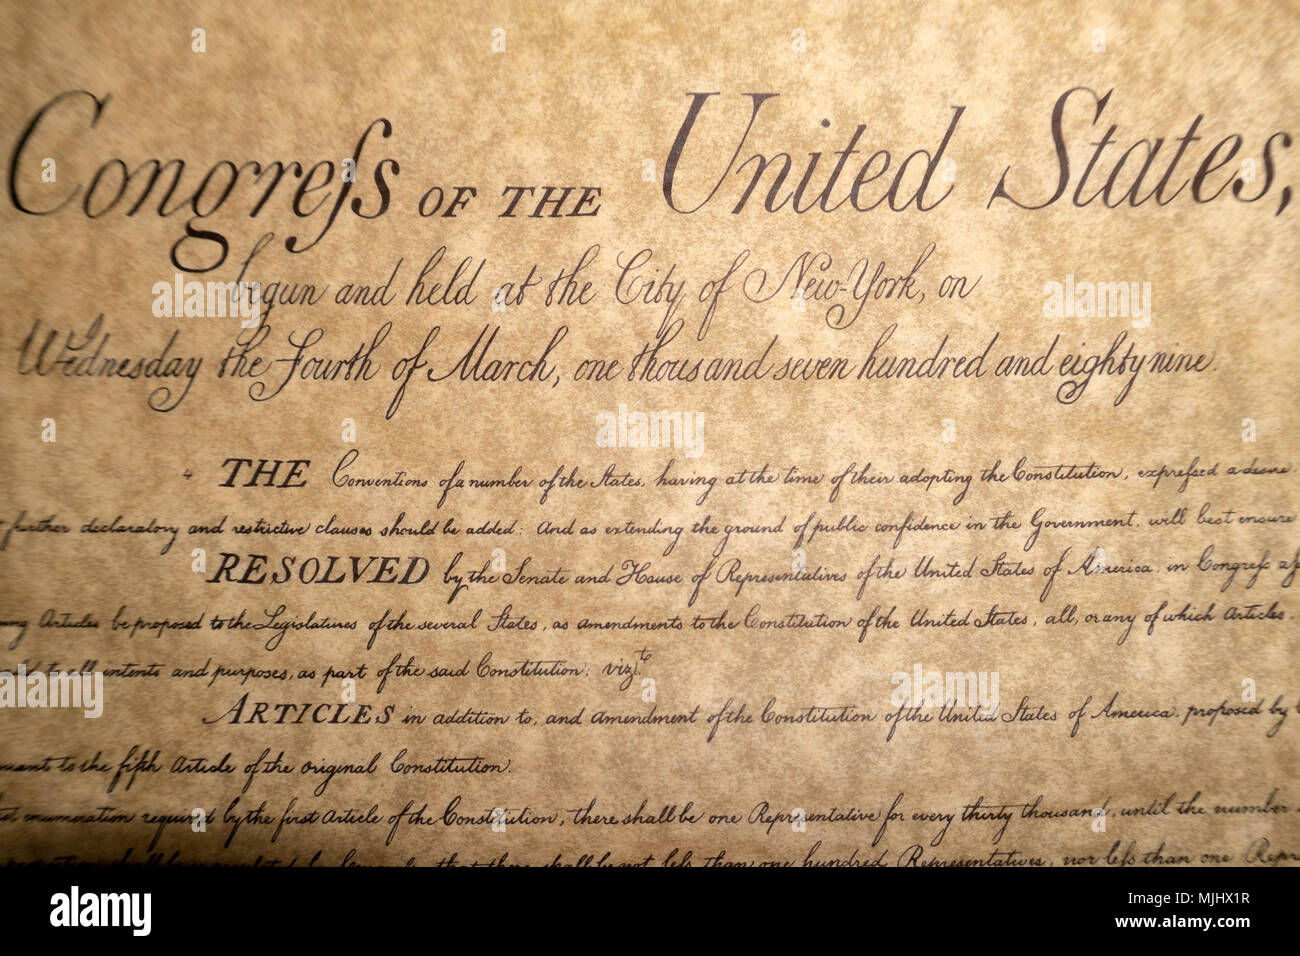 Congreſs OF THE United States,
begun and held at the City of New-York, on
Wednesday the Fourth of March, one thousand seven hundred and eighty nine.
THE Conventions of a number of the States, having at the time of their adopting the Constitution, expreſsed a desire
further declaratory and restrictive clauses should be added: And as extending the ground of public confidence in the Government, will best ensure
RESOLVED by the Senate and House of Representatives of the United States of America, in Congreſs
Articles be proposed to the Legislatures of the several States, as amendments to the Constitution of the United States, all, or any of which Articles,
to all intents and purposes, as part of the said Constitution; vizt.
ARTICLES in addition to, and amendment of the Constitution of the United States of America, proposed by
to the fifth Article of the original Constitution.
enumeration required by the first Article of the Constitution, there shall be one Representative for every thirty thousand, until the number
that there shall be not leſs than one hundred Representatives, nor leſs than one
alamy
Image ID: MJHX1R
www.alamy.com